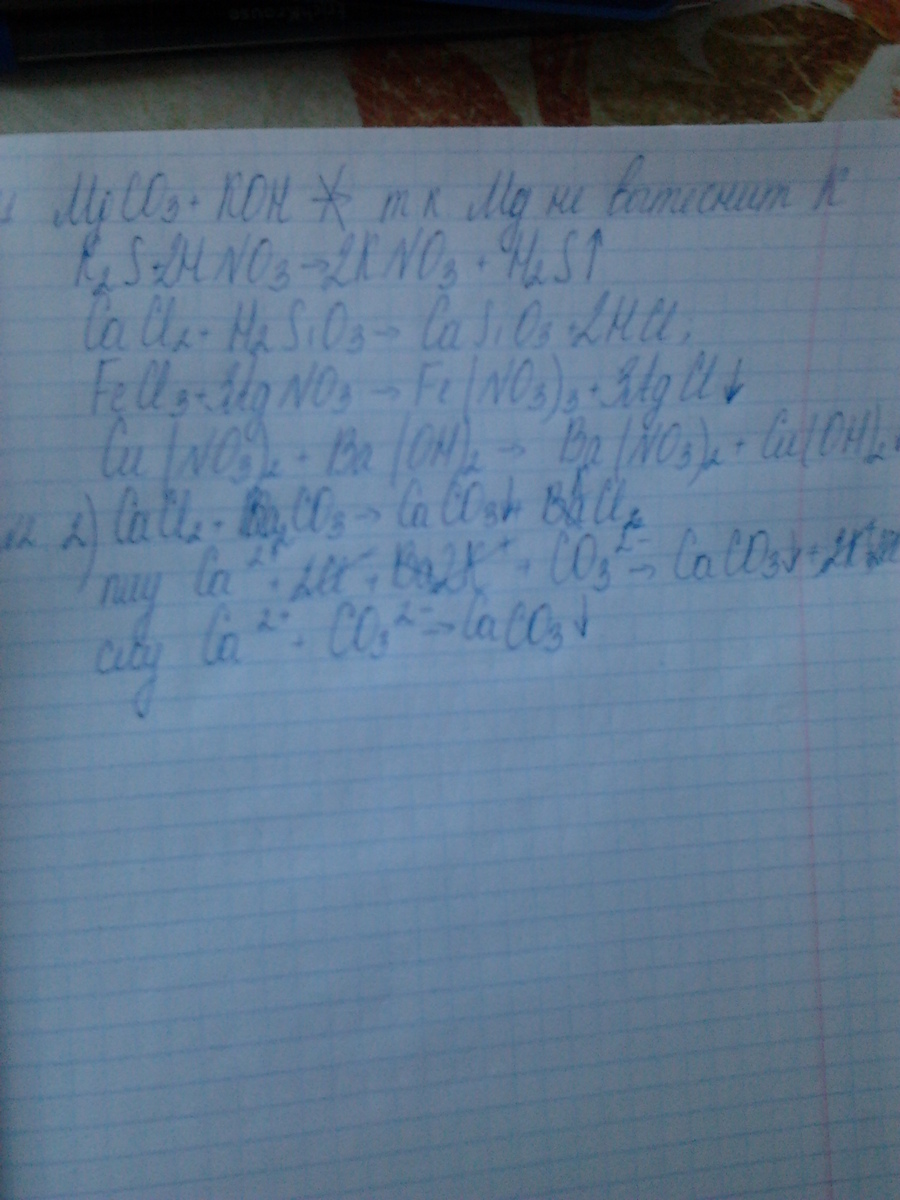 MgCO₃ + KOH ⇸ т к Mg не вытеснит K
K₂S + 2HNO₃ → 2KNO₃ + H₂S↑
CaCl₂ + H₂SiO₃ → CaSiO₃ + 2HCl
FeCl₃ + 3AgNO₃ → Fe(NO₃)₃ + 3AgCl↓
Cu(NO₃)₂ + Ba(OH)₂ → Ba(NO₃)₂ + Cu(OH)₂
2) CaCl₂ + CO₃ → CaCO₃↓ + Cl₂
пиу Ca²⁺ + 2Cl⁻ + 2K⁺ + CO₃²⁻ → CaCO₃↓ + 2K⁺
сиу Ca²⁺ + CO₃²⁻ → CaCO₃↓